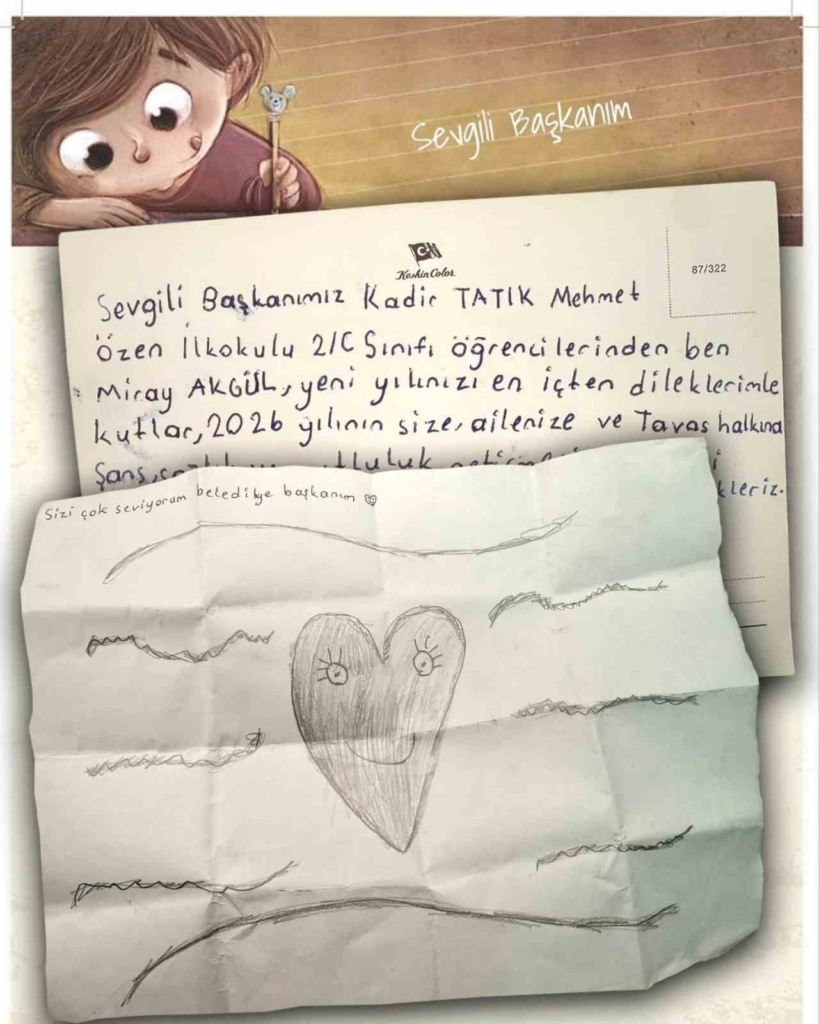 Sevgili Başkanım
Keskin Color
87/322
Sevgili Başkanımız Kadir TATIK Mehmet
Özen İlkokulu 2/C Sınıfı öğrencilerinden ben
Miray AKGÜL, yeni yılınızı en içten dileklerimle
kutlar, 2026 yılının size, ailenize ve Tavas halkına
Şans,
kleriz.
Sizi çok seviyorum belediye başkanım